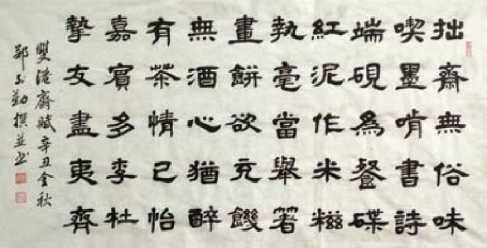 拙齋無俗味
喫墨啃書詩
端硯為餐碟
紅泥作米糍
執毫當舉箸
畫餅欲充饑
無酒心猶醉
有茶情已怡
嘉賓多李杜
摯友盡夷齊
雙港齋賦辛丑金秋
撰並書